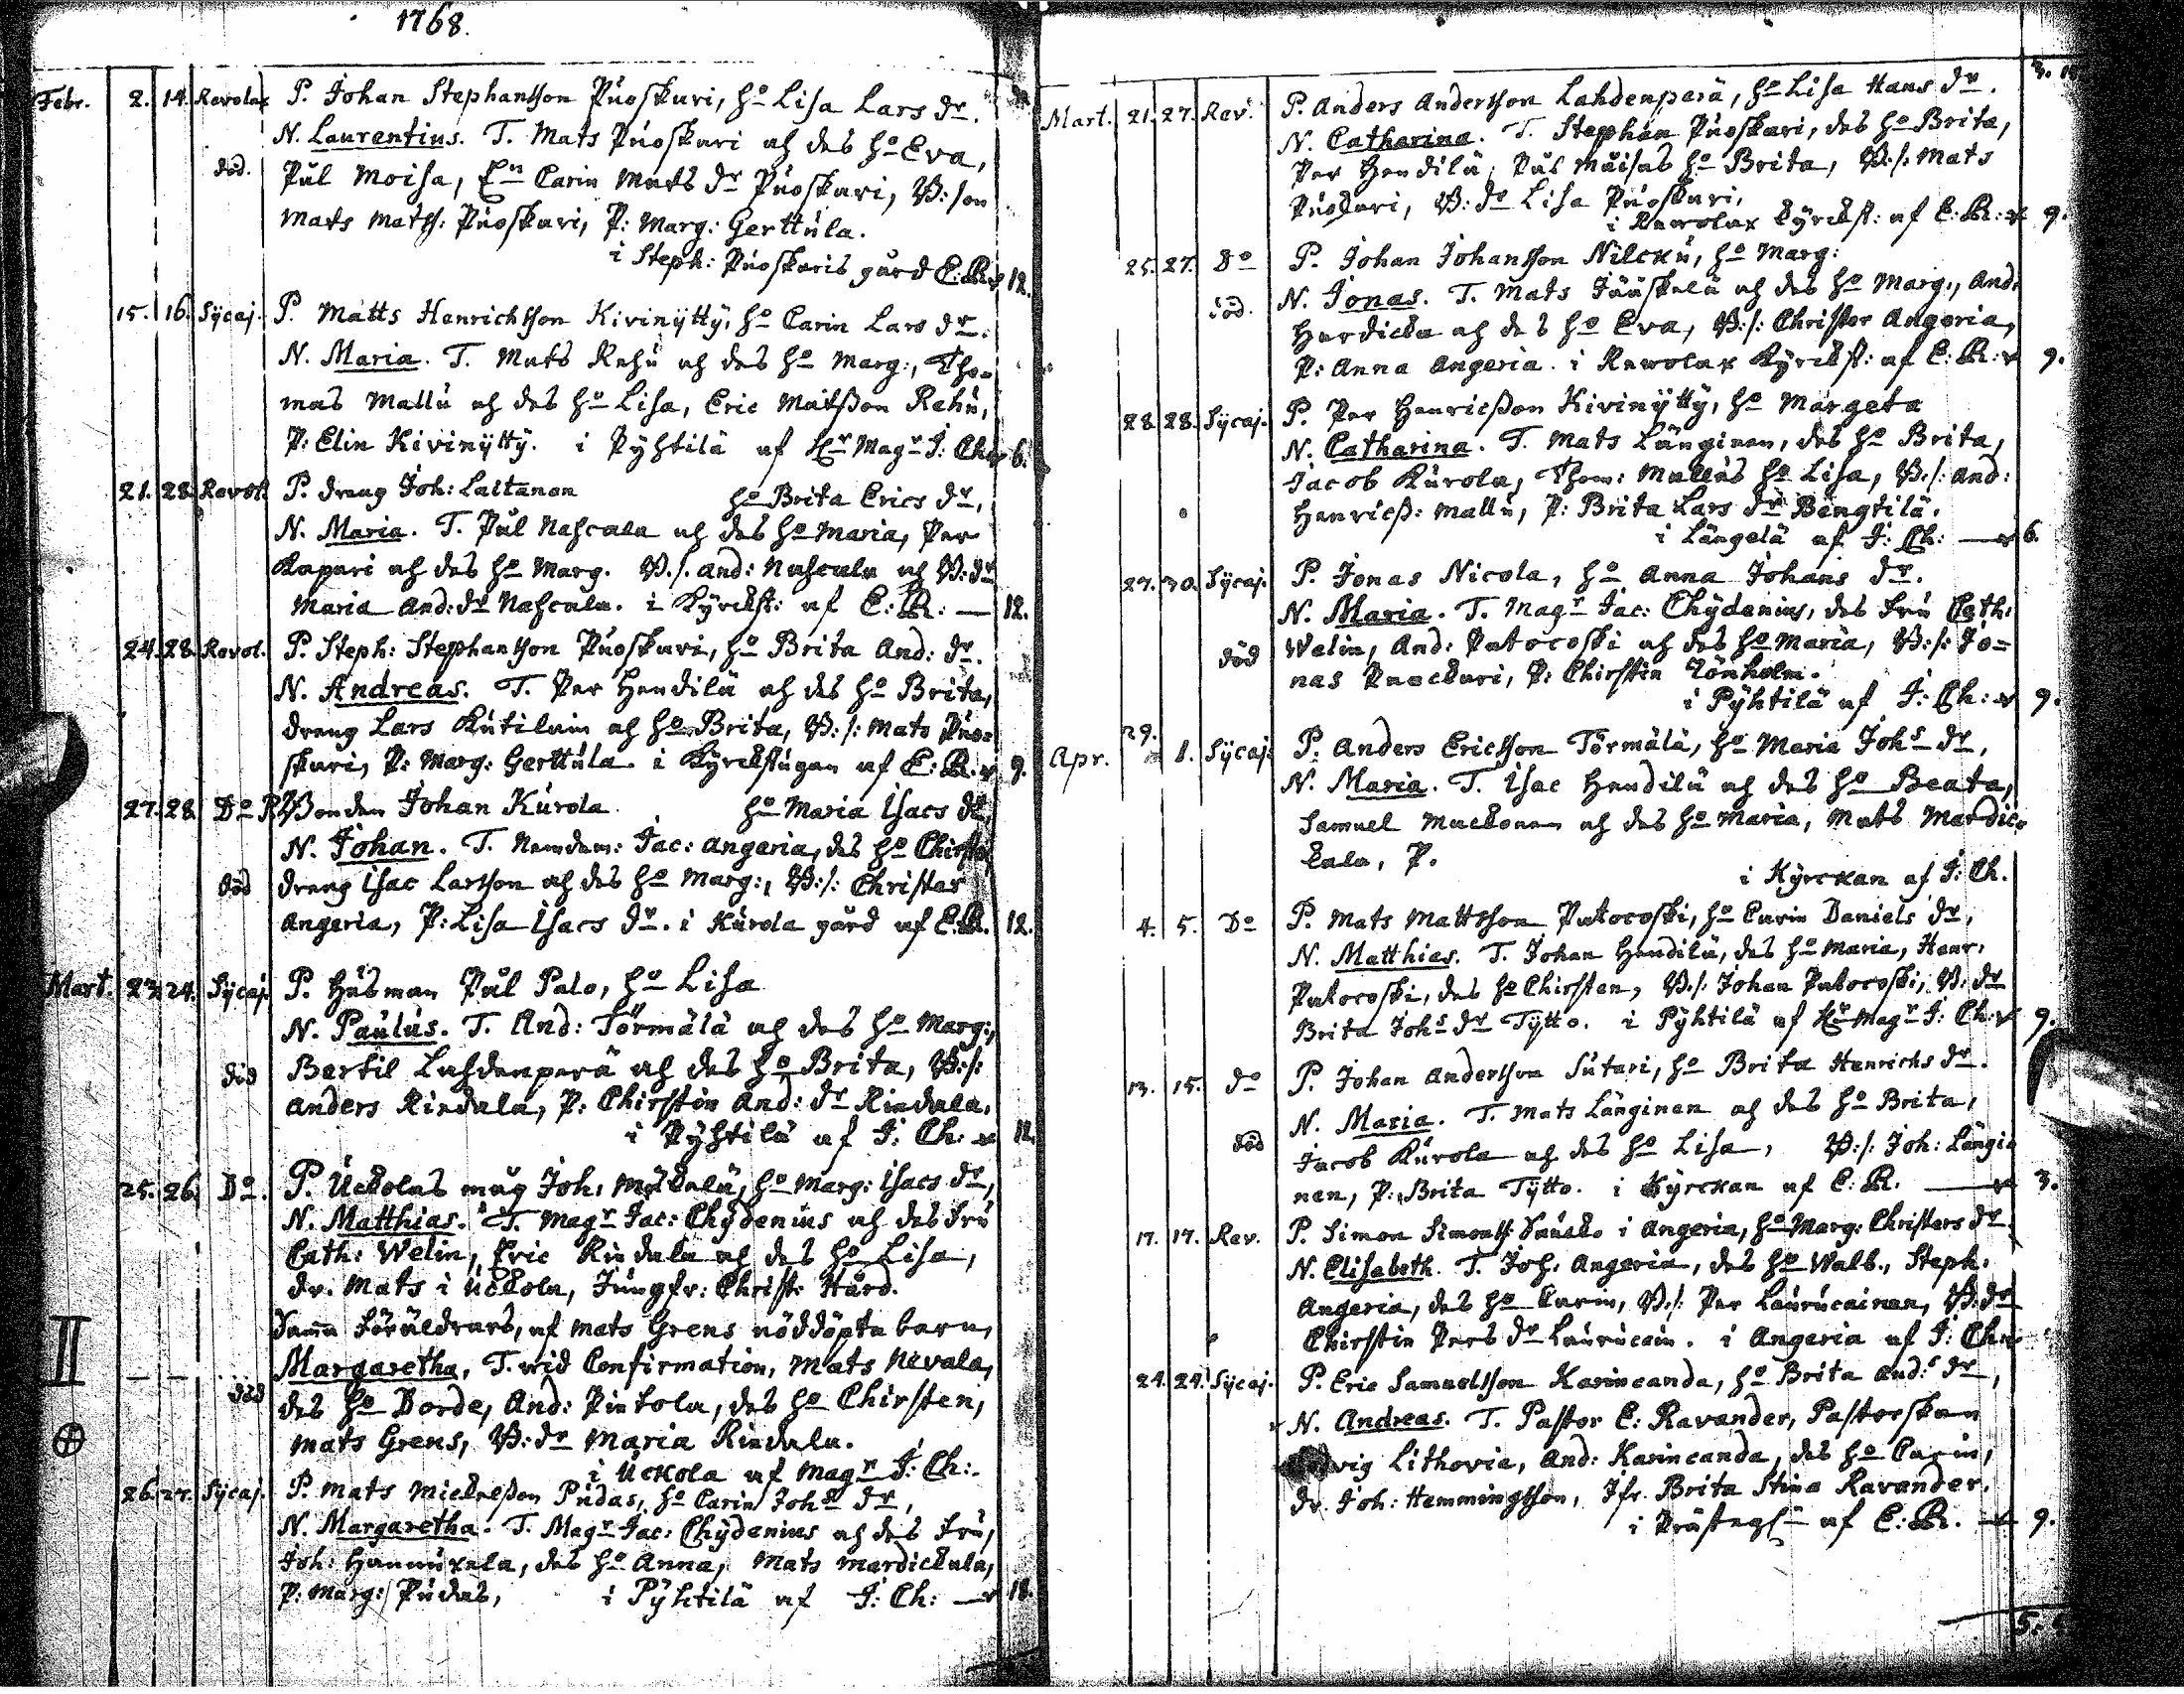 1768.
Febr. 2. 14. Revolax P. Johan Stephansson Puoskari, ho Lisa Lars dr.
N. Laurentius. T. Mats Puoskari och des ho Eva,
död. Pål Moisa, En Carin Mats dr Puoskari, B:son
Mats Matss: Puoskari, P: Marg: Gerttula.
i Steph: Puoskaris gård E:R. 12.
15. 16. Sÿcaj. P. Matts Henrichsson Kivinÿttÿ, ho Carin Lars dr.
N. Maria. T. Mats Rahu och des ho Marg:, Tho=
mas Mallu och des ho Lisa, Eric Matsson Rahu,
P: Elin Kivinÿttÿ. i Pÿhtilä af Hr Magr J: Ch: 6.
21. 28. Revol. P. dreng Joh: Laitanen ho Brita Erics dr,
N. Maria. T. Pål Nahcala och des ho Maria, Per
Kapari och des ho Marg. B./. And: Nahcala och B:dr
Maria And: dr Nahcala. i Kÿrckst: af E:R: — 12.
24. 28. Revol. P. Steph: Stephansson Puoskari, ho Brita And: dr.
N. Andreas. T. Per Hendilä och des ho Brita,
dreng Lars Kutilain och ho Brita, B:/: Mats Puo=
skari, P: Marg: Gerttula i Kÿrckstugan af E:R. 9.
27. 28. Do P. Bonden Johan Kurola ho Maria Isacs dr,
N. Johan. T. Nemdem: Jac: Angeria, des ho Chirstin,
död dreng Isac Larsson och des ho Marg:, B:/: Christer
Angeria, P: Lisa Isacs dr. i Kurola gård af E:R. 12.
Mart. 23. 24. Sÿcaj. P. Husman Pål Palo, ho Lisa
N. Paulus. T. And: Törmälä och des ho Marg:,
död Bertil Lahdenperä och des ho Brita, B:/:
Anders Rindala, P: Chirstin And: dr Rindala.
i Pÿhtilä af J: Ch: 12.
25. 26. Do. P. Uckolas måg Joh: Mäkelä, ho Marg: Isacs dr,
N. Matthias. T. Magr Jac: Chÿdenius och des fru
Cath: Welin, Eric Rindala och des ho Lisa,
dr. Mats i Uckola, Jungfr: Christ: Hård.
Samma föräldrars, af Mats Grens nöddöpta barn,
Margaretha, T. wid Confirmation, Mats Nevala,
död des ho Dorde, And: Pintola, des ho Chirsten,
Mats Grens, B:dr Maria Rindala.
i Uckola af Magr J: Ch:.
26. 27. Sÿcaj. P. Mats Mickelsson Pudas, ho Carin Johs dr,
N. Margaretha. T. Magr Jac: Chÿdenius och des fru,
Joh: Hannuxela, des ho Anna, Mats Mardickala,
P: Marg: Pudas, i Pÿhtilä af J: Ch: — 18.
Mart. 21. 27. Rev. P. Anders Andersson Lahdenperä, ho Lisa Hans dr.
N. Catharina. T. Stephan Puoskari, des ho Brita,
Per Hendilä, Pås Moisas ho Brita, B./: Mats
Puoskari, B:dr Lisa Puoskari,
i Rewolax Kÿrckst: af E:R: 9.
25. 27. Do P. Johan Johansson Nilcku, ho Marg:
död. N. Jonas. T. Mats Jääskelä och des ho Marg:, And.
Hardicka och des ho Eva, B:/: Christer Angeria,
P: Anna Angeria. i Rewolax Kÿrckst: af E:R: 9.
28. 28. Sÿcaj. P. Per Henricsson Kivinÿttÿ, ho Margeta
N. Catharina. T. Mats Länginen, des ho Brita,
Jacob Kurola, Thom: Mallus ho Lisa, B./: And:
Henricss: Mallu, P: Brita Lars dr Bengtilä.
i Längelä af J: Ch: — 6.
27. 30. Sÿcaj. P. Jonas Nicola, ho Anna Johans dr.
N. Maria. T. Magr Jac: Chÿdenius, des fru Cath:
död Welin, And: Patocoski och des ho Maria, B:/: Jo=
nas Puockari, P: Chirstin Lönholm.
i Pÿhtilä af J: Ch: 9.
Apr. 29. 1. Sÿcaj. P. Anders Ericsson Törmälä, ho Maria Johs dr,
N. Maria. T. Isac Hendilä och des ho Beata,
Samuel Muckonen och des ho Maria, Mats Mardic=
kala, P.
i Kÿrckan af J: Ch.
4. 5. Do P. Mats Mattsson Patocoski, ho Carin Daniels dr,
N. Matthias. T. Johan Hendilä, des ho Maria, Henr.
Patocoski, des ho Chirsten, B./. Johan Patocoski, B. dr
Brita Johs dr Tÿtto. i Pÿhtilä af Hr Magr J: Ch: 9.
13. 15. do P. Johan Andersson Sutari, ho Brita Henrichs dr.
N. Maria. T. Mats Länginen och des ho Brita,
död Jacob Kurola och des ho Lisa, B:/: Joh: Längi
nen, P: Brita Tÿtto. i Kÿrckan af E:R. — 3.
17. 17. Rev. P. Simon Simonss: Saucko i Angeria, ho Marg: Christers dr.
N. Elisabeth. T. Joh. Angeria, des ho Walb., Steph.
Angeria, des ho Carin, B:/: Per Laurucainen, B:dr
Chirstin Pers dr Laurucain. i Angeria af J: Ch:
24. 24. Sÿcaj. P. Eric Samuelsson Karincanda, ho Brita And:s dr,
N. Andreas. T. Pastor E: Ravander, Pastorskan
vig Lithovia, And: Karincanda, des ho Carin,
dr. Joh: Hemmingsson, Jfr. Brita Stina Ravander.
i Prästeg: af E:R. — 9.